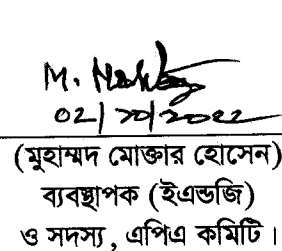 M.
02/10/2022
(মুহাম্মদ মোক্তার হোসেন)
ব্যবস্থাপক (ইএন্ডজি)
ও সদস্য, এপিএ কমিটি।